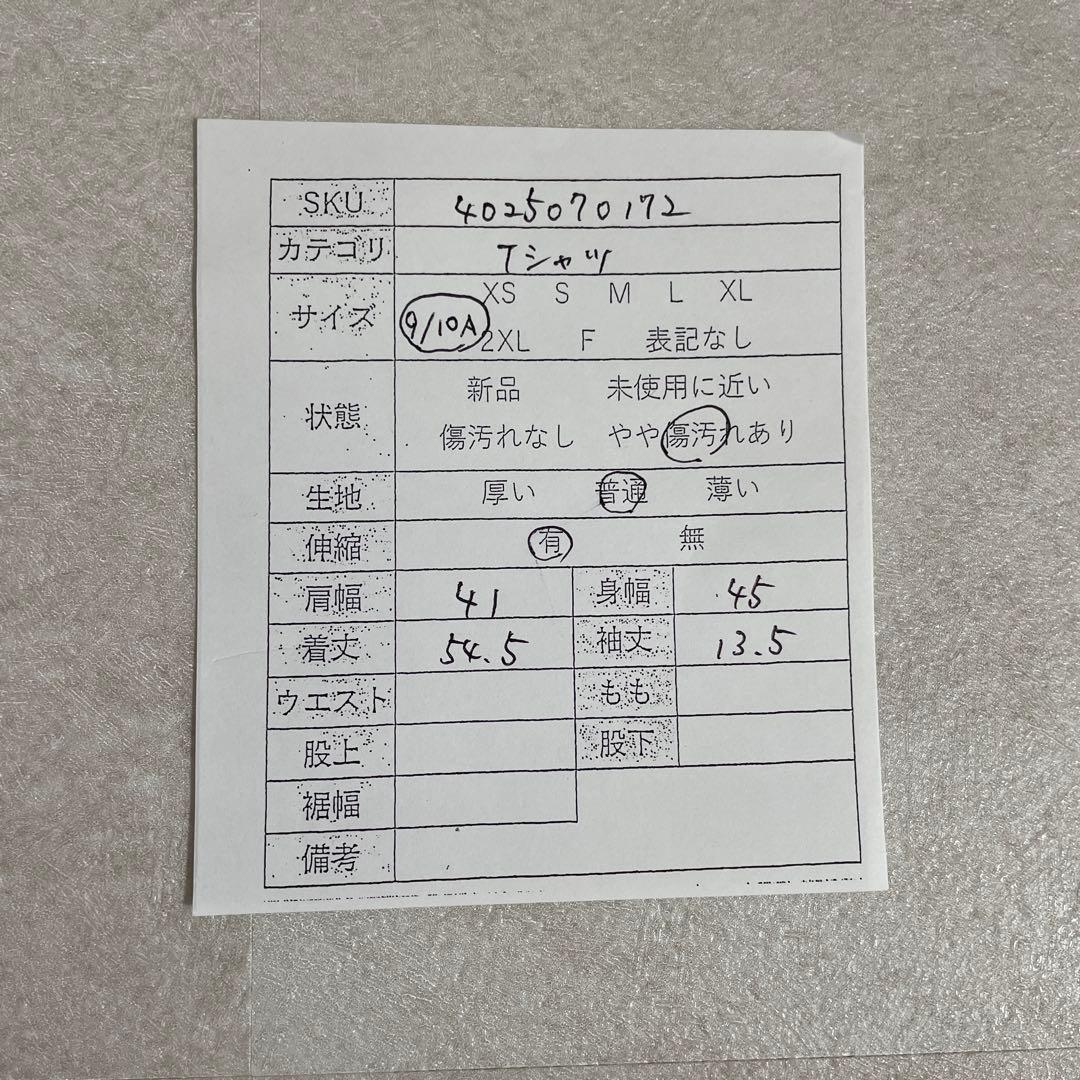 SKU 4025070172
カテゴリ Tシャツ
サイズ XS S M L XL
9/10A 2XL F 表記なし
状態 新品 未使用に近い
傷汚れなし やや傷汚れあり
生地 厚い 普通 薄い
伸縮 有 無
肩幅 41 身幅 45
着丈 54.5 袖丈 13.5
ウエスト もも
股上 股下
裾幅
備考